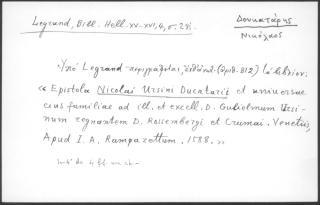 Legrand, Bibl. Hell. XV-XVI, 4, σ. 29.
Δουκατάρης
Νικόλαος
«Ὑπὸ Legrand περιγράφεται, (ἀριθ. 812) τὸ βιβλίον:
«Epistola Nicolai Ursini Ducatarii et universae
eius familiae ad ill. et excell. D. Gulielmum Ursi-
num regnantem D. Rossembergi et Crumai. Venetiis,
Apud I. A. Rampazettum. 1588.»